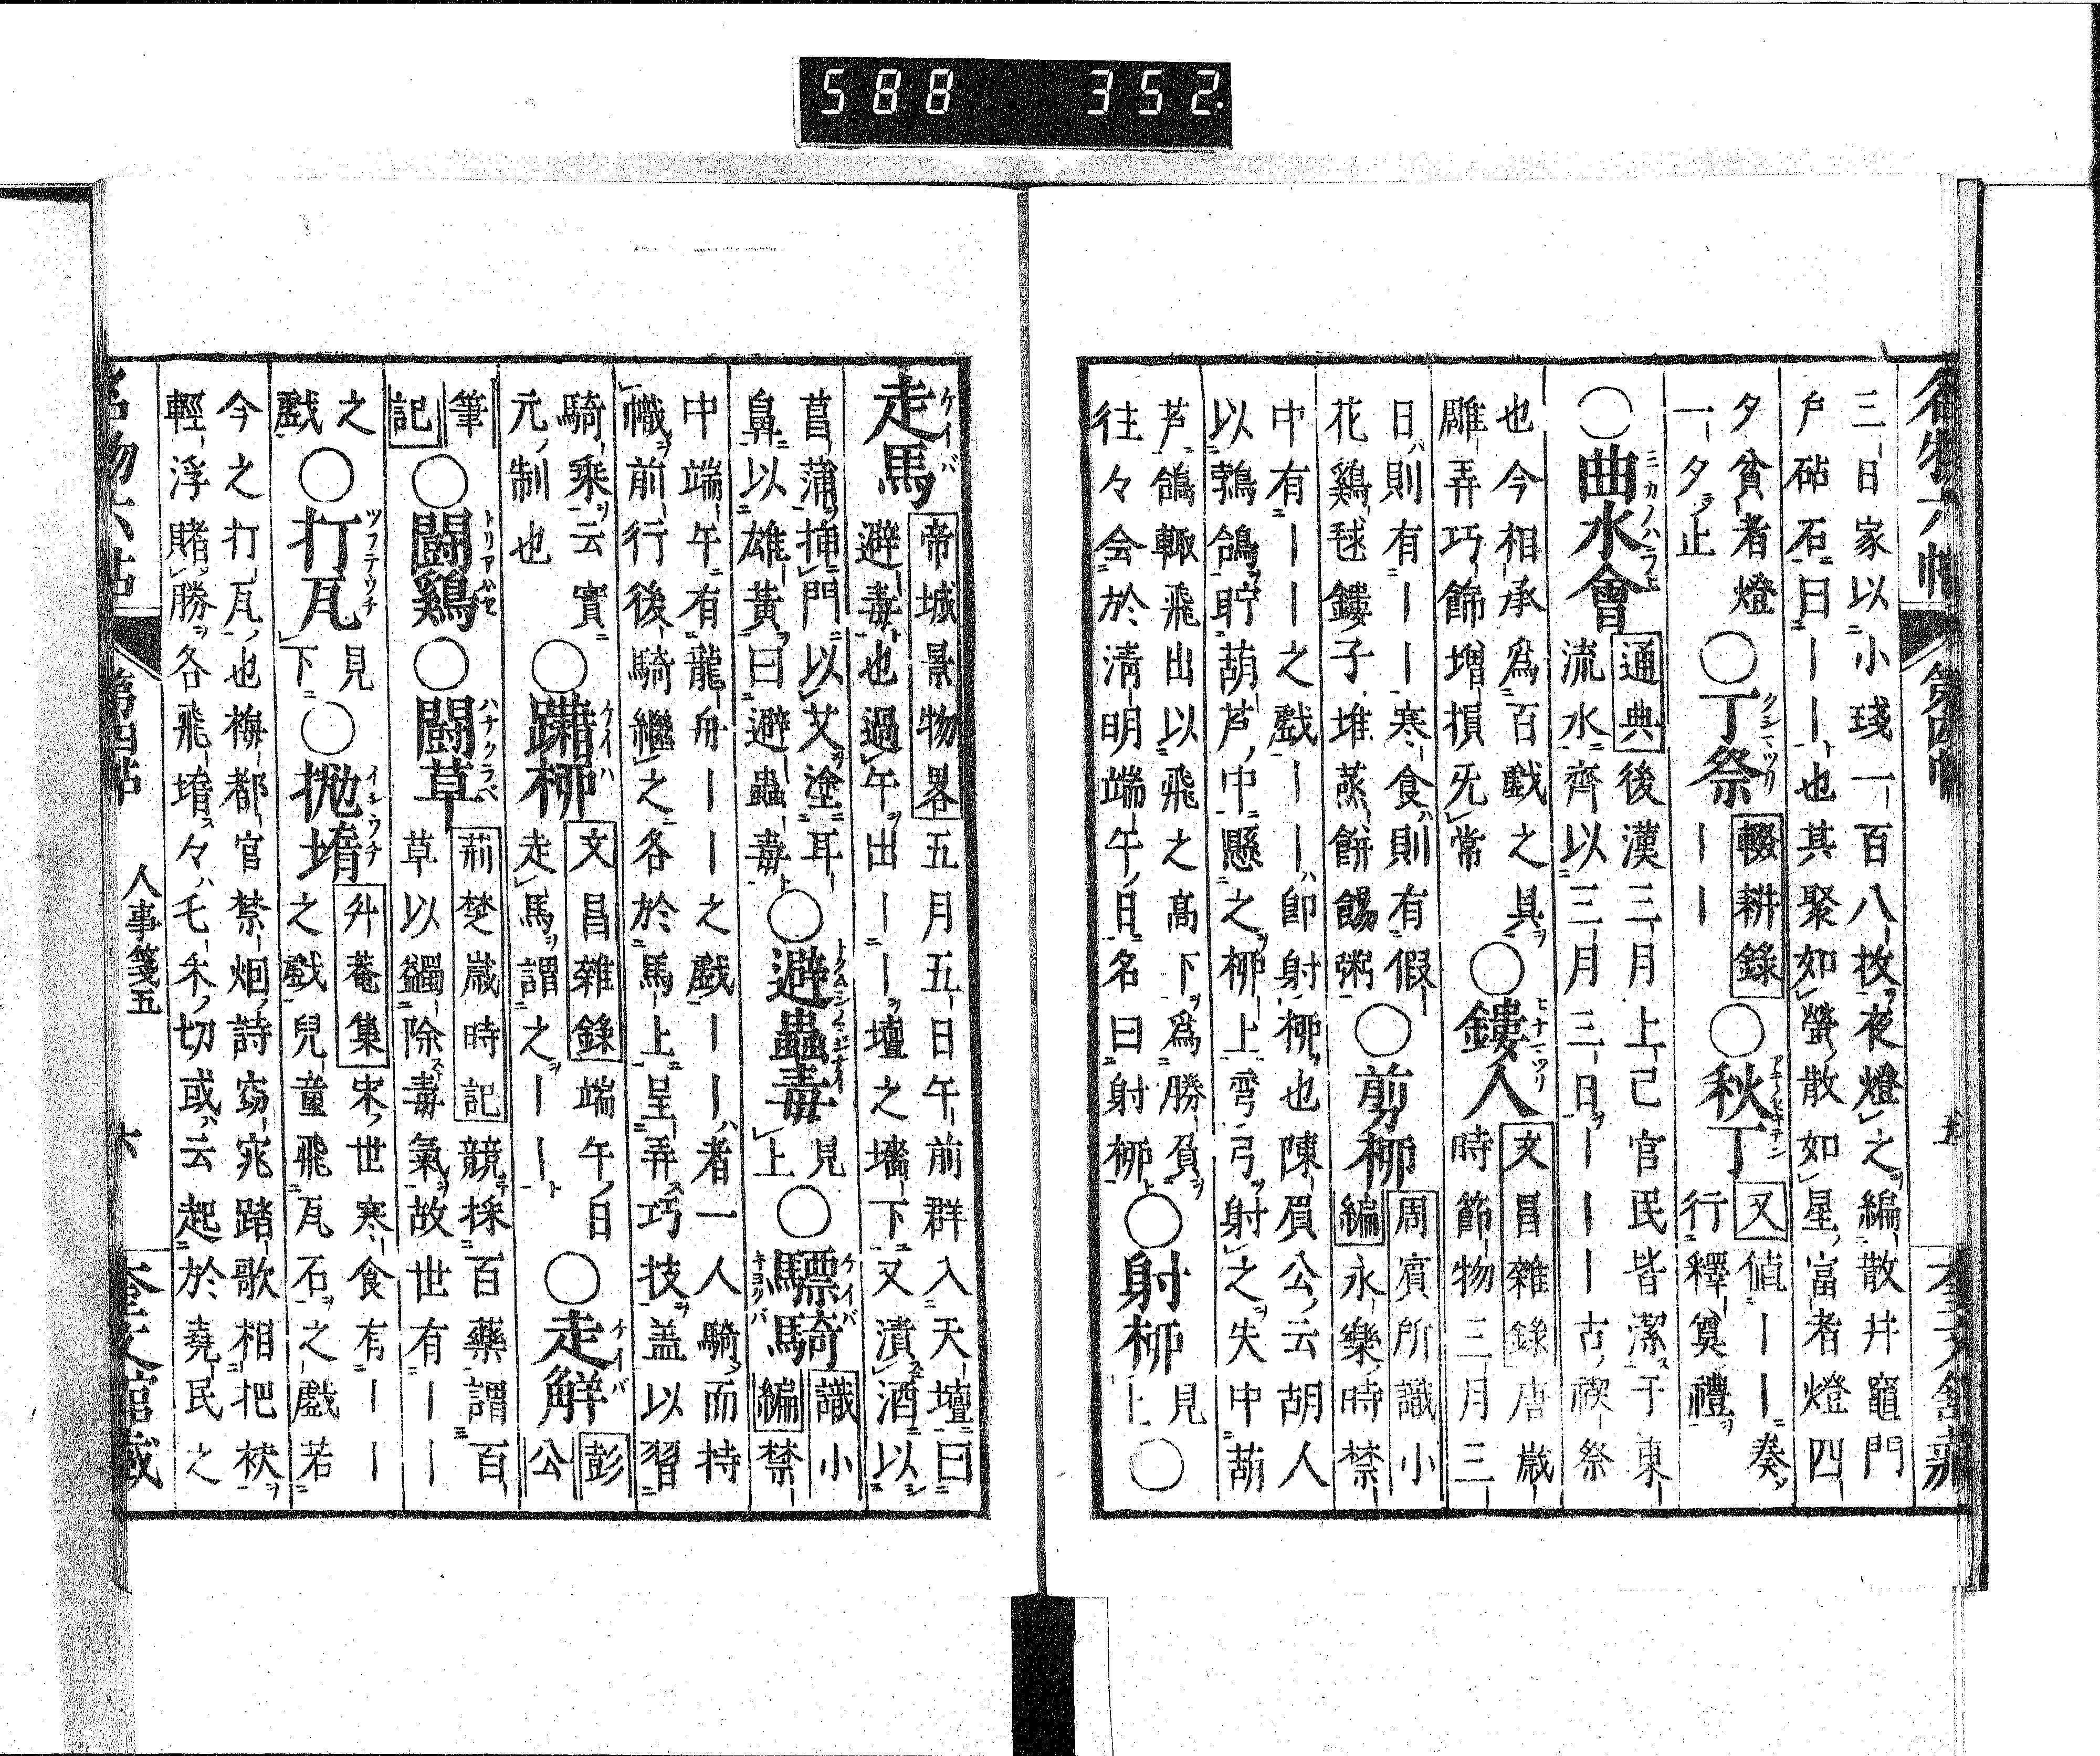 588 352.
名物六帖 第四帖 五 奎文館藏
三日家以小琖一百八枚夜燈之編散井竈門
戶砧石曰丨丨也其聚如螢散如星富者燈四
夕貧者燈
一夕止
○丁祭 クシマツリ
輟耕錄
丨丨
○秋丁
又値丨丨奏
行釋奠禮
○曲水會
通典後漢三月上巳官民皆潔于東
流水齊以三月三日丨丨丨古禊祭
也今相承爲百戲之具
雕弄巧飾增損旡常
○鏤人
文昌雜錄唐歳
時節物三月三
日則有丨丨寒食則有假
花鷄毬鏤子堆蒸餅餳粥
○剪柳
周賓所識小
編永樂時禁
中有丨丨之戲丨丨卽射柳也陳眉公云胡人
以鵓鴿貯葫芦中懸之柳上弯弓射之失中葫
芦鴿輙飛出以飛之高下爲勝負
往々会於淸明端午日名曰射柳
○射柳
見
上
○
走馬 ケイバ
帝城景物畧五月五日午前群入天壇曰
避毒也過午出丨丨壇之墻下又漬酒以
菖蒲揷門以艾塗耳
鼻以雄黃曰避蟲毒
○避蟲毒
見
上
○驃騎 ケイバ キヨクバ
識小
編禁
中端午有龍舟丨丨之戲丨丨者一人騎而持
幟前行後騎繼之各於馬上呈弄巧技盖以習
騎乘云實
元制也
○躤柳 ケイハ
文昌雜錄端午日
走馬謂之丨丨
○走解 ケイバ
彭
公
筆
記
○鬪鷄 トリアハセ
○鬪草 ハナクラベ
荊楚嵗時記競採百藥謂百
草以蠲除毒氣故世有丨丨
之
戲
○打瓦 ツフテウチ
見
下
○抛堶 イシウチ
升菴集宋世寒食有丨丨
之戲兒童飛瓦石之戲若
今之打瓦也梅都官禁烟詩窈窕踏歌相把袂
輕浮賭勝各飛堶々七禾切或云起於堯民之
名物六帖 第四帖 人事箋五 六 奎文館藏